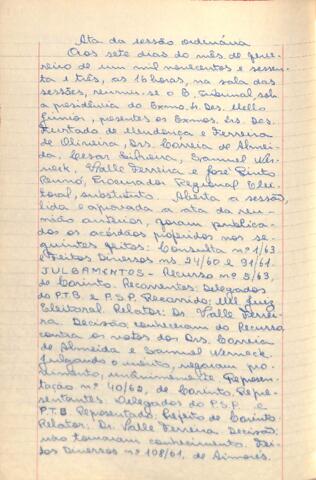 Ata da sessão ordinária
Aos sete dias do mês de feve-
reiro de um mil novecentos e sessen-
ta e três, às 16 horas, na sala das
sessões, reuniu-se o E. Tribunal, sob
a presidência do Exmo. Sr. Des. Mello
Júnior, presentes os Exmos. Srs. Des.
Furtado de Mendonça e Ferreira
de Oliveira, Drs. Correia de Almei-
da, Cesar Silveira, Samuel Wer-
neck, Valle Ferreira e José Pinto
Renó, Procurador Regional Elei-
toral, substituto. Aberta a sessão,
lida e aprovada a ata da reu-
nião anterior, foram publica-
dos os acórdãos proferidos nos se-
guintes feitos: Consulta nº 1/63
e Feitos Diversos ns 24/60 e 91/61.
JULGAMENTOS - Recurso nº 5/63,
de Corinto. Recorrentes: Delegados
do P.T.B. e P.S.P. Recorrido: MM Juiz
Eleitoral. Relator: Dr. Valle Ferrei-
ra. Decisão, conheceram do Recurso,
contra os votos dos Drs. Correia
de Almeida e Samuel Werneck.
Julgando o mérito, negaram pro-
vimento, unanimemente. Represen-
tação nº 40/62, de Corinto, Repre-
sentantes: Delegados do P.S.P. e
P.T.B. Representado: Prefeito de Corinto
Relator: Dr. Valle Ferreira. Decisão,
não tomaram conhecimento. Fei-
tos Diversos nº 108/61, de Aimorés.